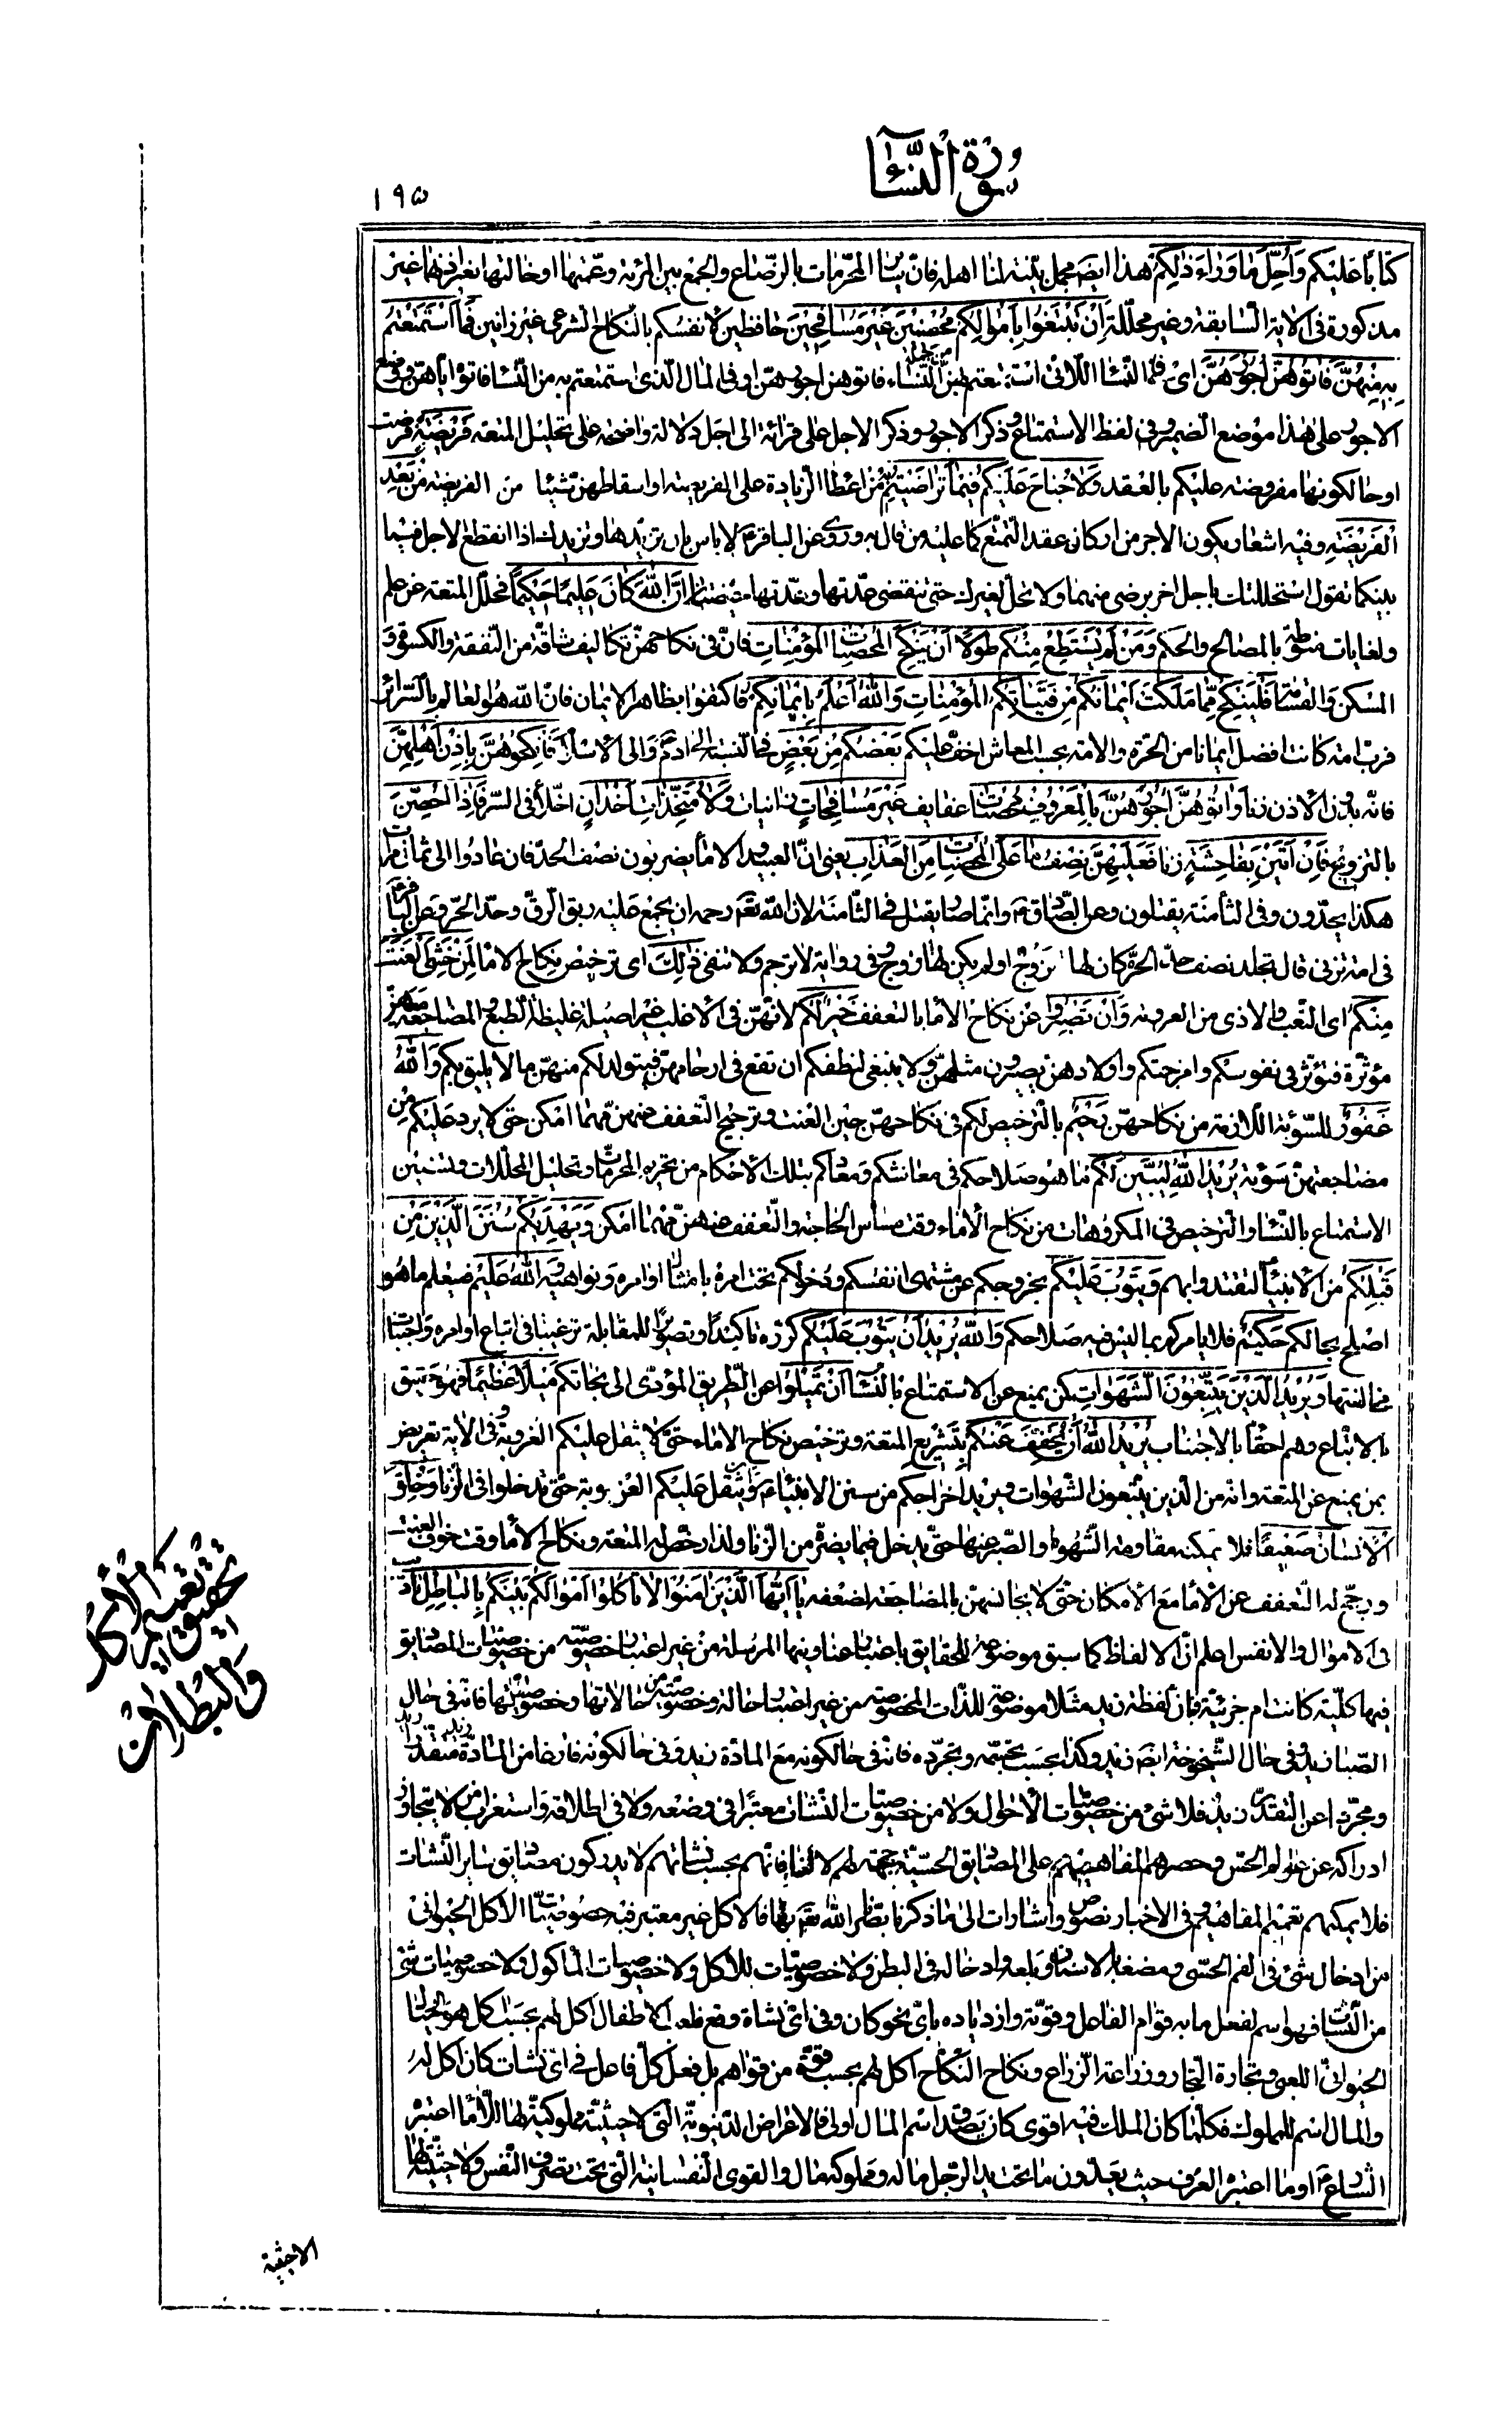 سورة النساء
١٩٥
كتابا عليكم وَأُحِلَّ مَا وَرَاءَ ذَلِكُمْ هذا ايضَ مجمل بيّنه لنا اهله فانّ سائر المحرّمات بالرّضاع والجمع بين المرئة وعمّتها او خالتها بغير اذنهما غير
مذكورة فى الاية السّابقة وغير محلّلة اَنْ تَبْتَغُوا بِاَمْوَالِكُمْ مُحْصِنِينَ غَيْرَ مُسَافِحِينَ حافظين لانفسكم بالنّكاح الشرعى غير زانين فَمَا اسْتَمْتَعْتُمْ
بِهِ مِنْهُنَّ فَاتُوهُنَّ اُجُورَهُنَّ اى فما النّساء اللّاتى استمتعتم بهنّ من جملة النّساء فاتوهنّ اجورهنّ او فالمال الّذى استمتعتم به من النّساء فاتوا اياهنّ ووضع
الاجور على هذا موضع الضّمير وفى لفظ الاستمتاع وذكر الاجور وذكر الاجل على قرائة الى اجل دلالة واضحة على تحليل المتعة فَرِيضَةً فرضت
او حالكونها مفروضة عليكم بالعقد وَلَا جُنَاحَ عَلَيْكُمْ فِيمَا تَرَاضَيْتُمْ بِهِ من اعطاء الزّيادة على الفريضة او اسقاطهنّ شيئا من الفريضة مِنْ بَعْدِ
الْفَرِيضَةِ وفيه اشعار بكون الاجر من اركان عقد التّمتّع كما عليه من قال به وروى عن الباقر ع لا باس بان تزيدها وتزيدك اذا انقطع الاجل فيما
بينكما تقول استحللتك باجل اخر برضى منهما ولا تحلّ لغيرك حتى تنقضى عدّتها وعدّتها حيضتان اِنَّ اللهَ كَانَ عَلِيمًا حَكِيمًا فحلّل المتعة عن علم
ولغايات منوطة بالمصالح والحكم وَمَنْ لَمْ يَسْتَطِعْ مِنْكُمْ طَوْلًا اَنْ يَنْكِحَ الْمُحْصَنَاتِ الْمُؤْمِنَاتِ فانّ فى نكاحهنّ تكاليف شاقّة من النّفقة والكسوة و
المسكن والقسامة فَلْيَنْكِحْ مِمَّا مَلَكَتْ اَيْمَانُكُمْ مِنْ فَتَيَاتِكُمُ الْمُؤْمِنَاتِ وَاللهُ اَعْلَمُ بِاِيمَانِكُمْ فاكتفوا بظاهر الايمان فانّ الله هو العالم بالسّرائر
فربّ امة كانت افضل ايمانا من الحرّة والامة بحسب المعاش اخفّ عليكم بَعْضُكُمْ مِنْ بَعْضٍ فى النّسبة الى ادم ع والى الاسلام فَانْكِحُوهُنَّ بِاِذْنِ اَهْلِهِنَّ
فانّه بدون الاذن زنا وَاتُوهُنَّ اُجُورَهُنَّ بِالْمَعْرُوفِ مُحْصَنَاتٍ عفايف غَيْرَ مُسَافِحَاتٍ زانيات وَلَا مُتَّخِذَاتِ اَخْدَانٍ اخلّاء فى السّر فَاِذَا اُحْصِنَّ
بالتزويج فَاِنْ اَتَيْنَ بِفَاحِشَةٍ زنا فَعَلَيْهِنَّ نِصْفُ مَا عَلَى الْمُحْصَنَاتِ مِنَ الْعَذَابِ يعنى انّ العبيد والاماء يضربون نصف الحدّ فان عادوا الى ثمان مرات
هكذا يحدّون وفى الثّامنة يقتلون وعن الصّادق ع وانّما صار يقتل فى الثّامنة لان الله تعَ رحمه ان يجمع عليه ربق الرقّ وحدّ الحرّ وعن الباقر ع
فى امة تزنى قال تجلد نصف حدّ الحرّة كان لها زوج او لم يكن لها زوج وفى رواية لا ترجم ولا تنفى ذَلِكَ اى ترخيص نكاح الاماء لِمَنْ خَشِىَ الْعَنَتَ
مِنْكُمْ اى التّعب والاذى من العزوبة وَاَنْ تَصْبِرُوا عن نكاح الاماء بالتعفف خَيْرٌ لَكُمْ لانّهنّ فى الاغلب غير اصيلة غليظة الطّبع والمضاجعة معهنّ
مؤثّرة فتؤثّر فى نفوسكم وامزجتكم واولادهنّ يصيرون مثلهنّ ولا ينبغى لنطفكم ان تقع فى ارحامهنّ فيتولد لكم منهنّ ما لا يليق بكم وَاللهُ
غَفُورٌ للسّوئة اللّازمة من نكاحهنّ رَحِيمٌ بالتّرخيص لكم فى نكاحهنّ حين العنت وترجيح التّعفف منهنّ مهما امكن حتى لا يرد عليكم من
مضاجعتهنّ سوئة يُرِيدُ اللهُ لِيُبَيِّنَ لَكُمْ ما هو صلاحكم فى معاشكم ومعادكم بتلك الاحكام من تحريم المحرّمات وتحليل المحلّلات وتسنين
الاستمتاع بالنّساء والتّرخيص فى المكروهات من نكاح الاماء وقت مساس الحاجة والتّعفف عنهنّ مهما امكن وَيَهْدِيَكُمْ سُنَنَ الَّذِينَ مِنْ
قَبْلِكُمْ من الانبياء لتقتدوا بهم وَيَتُوبَ عَلَيْكُمْ بخروجكم عن مشتهى انفسكم ودخولكم تحت امره بامتثال اوامره ونواهيه وَاللهُ عَلِيمٌ فيعلم ما هو
اصلح بحالكم حَكِيمٌ فلا يامركم بما ليس فيه صلاحكم وَاللهُ يُرِيدُ اَنْ يَتُوبَ عَلَيْكُمْ كرّره تاكيدا وتصويرا للمقابلة ترغيبا فى اتباع اوامره واجتناب
مخالفتها وَيُرِيدُ الَّذِينَ يَتَّبِعُونَ الشَّهَوَاتِ كمن يمنع عن الاستمتاع بالنّساء اَنْ تَمِيلُوا عن الطّريق المؤدّى الى نجاتكم مَيْلًا عَظِيمًا فهو حقيق
بالاتّباع وهم احقّاء بالاجتناب يُرِيدُ اللهُ اَنْ يُخَفِّفَ عَنْكُمْ بتشريع المتعة وترخيص نكاح الاماء حتى لا يثقل عليكم العزوبة وفى الاية تعريض
بمن يمنع عن المتعة وانّه من الّذين يتّبعون الشّهوات ويريد اخراجكم من سنن الانبياء ع وان يثقل عليكم العزوبة حتّى تدخلوا فى الزّنا وَخُلِقَ
الْاِنْسَانُ ضَعِيفًا فلا يمكنه مقاومة الشّهوات والصّبر عنها حتّى يدخل فيما يضرّه من الزّنا ولذا رخّص له المتعة ونكاح الاماء وقت خوف العنت
ورجّح له التّعفف عن الاماء مع الامكان حتّى لا يجانسهنّ بالمضاجعة لضعفه يَا اَيُّهَا الَّذِينَ امَنُوا لَا تَاْكُلُوا اَمْوَالَكُمْ بَيْنَكُمْ بِالْبَاطِلِ
فى الاموال والانفس اعلم انّ الالفاظ كما سبق موضوعة للحقايق باعتبار عناوينها المرسلة من غير اعتبار خصوصيّة من خصوصيّات المصاديق
فيها كلّية كانت ام جزئيّة فانّ لفظة زيد مثلا موضوعة للذّات المخصوصة من غير اعتبار حالة وخصوصيّة من حالاتها وخصوصيّاتها فانّه فى حال
الصّبا زيد وفى حال الشّيخوخة ايضَ زيد وكذا بحسب تجسّمه وتجرّده فانّه فى حالكونه مع المادّة زيد وفى حالكونه فارغا من المادّة متقدّرا زيد
ومجرّدا عن التّقدّر زيد فلا شىء من خصوصيّات الاحوال ولا من خصوصيّات النّشات معتبرا فى وضعه ولا فى اطلاقه واستغراب من لا يتجاوز
ادراكه عن عوالم الحسّ وحصرهم المفاهيم على المصاديق الحسّيّة حجّة لهم لا لنا فانّهم بحسب نشاتهم لا يدركون مصاديق ساير النّشات
فلا يمكنهم تعميم المفاهيم وفى الاخبار نصوص واشارات الى ما ذكرنا فالاكل غير معتبر فيه خصوصيّات الاكل الحيوانىّ
من ادخال شىء فى الفم الحسّى ومضغه بالاسنان وبلعه وادخاله فى البطن ولا خصوصيّات للاكل ولا خصوصيّات الماكول ولا خصوصيّات شىء
من النّشات فهو اسم لفعل ما به قوام الفاعل وقوّته وازدياده باىّ نحو كان وفى اىّ نشاة وقع فلعب الاطفال اكل لهم بحسب
الحيوانىّ اللعبى وتجارة التّجار وزراعة الزّراع ونكاح النّكّاح اكل لهم بحسب قوّة من قواهم بل فعل كلّ فاعل فى اىّ نشات كان اكل له
والمال اسم للمملوك فكلّما كان الملك فيه اقوى كان بصدق اسم المال اولى فالاعراض الدّنيويّة الّتى لا حيثيّة مملوكيّة لها الّا ما اعتبره
الشّارع او ما اعتبره العرف حيث يعدّون ما تحت يد الرّجل ماله ومملوكه مال والقوى النّفسانيّة الّتى تحت تصرف النّفس ولا حيثيّة لها
تحقيق
تعميم الاكل
والبطلان
الاحيثيّة